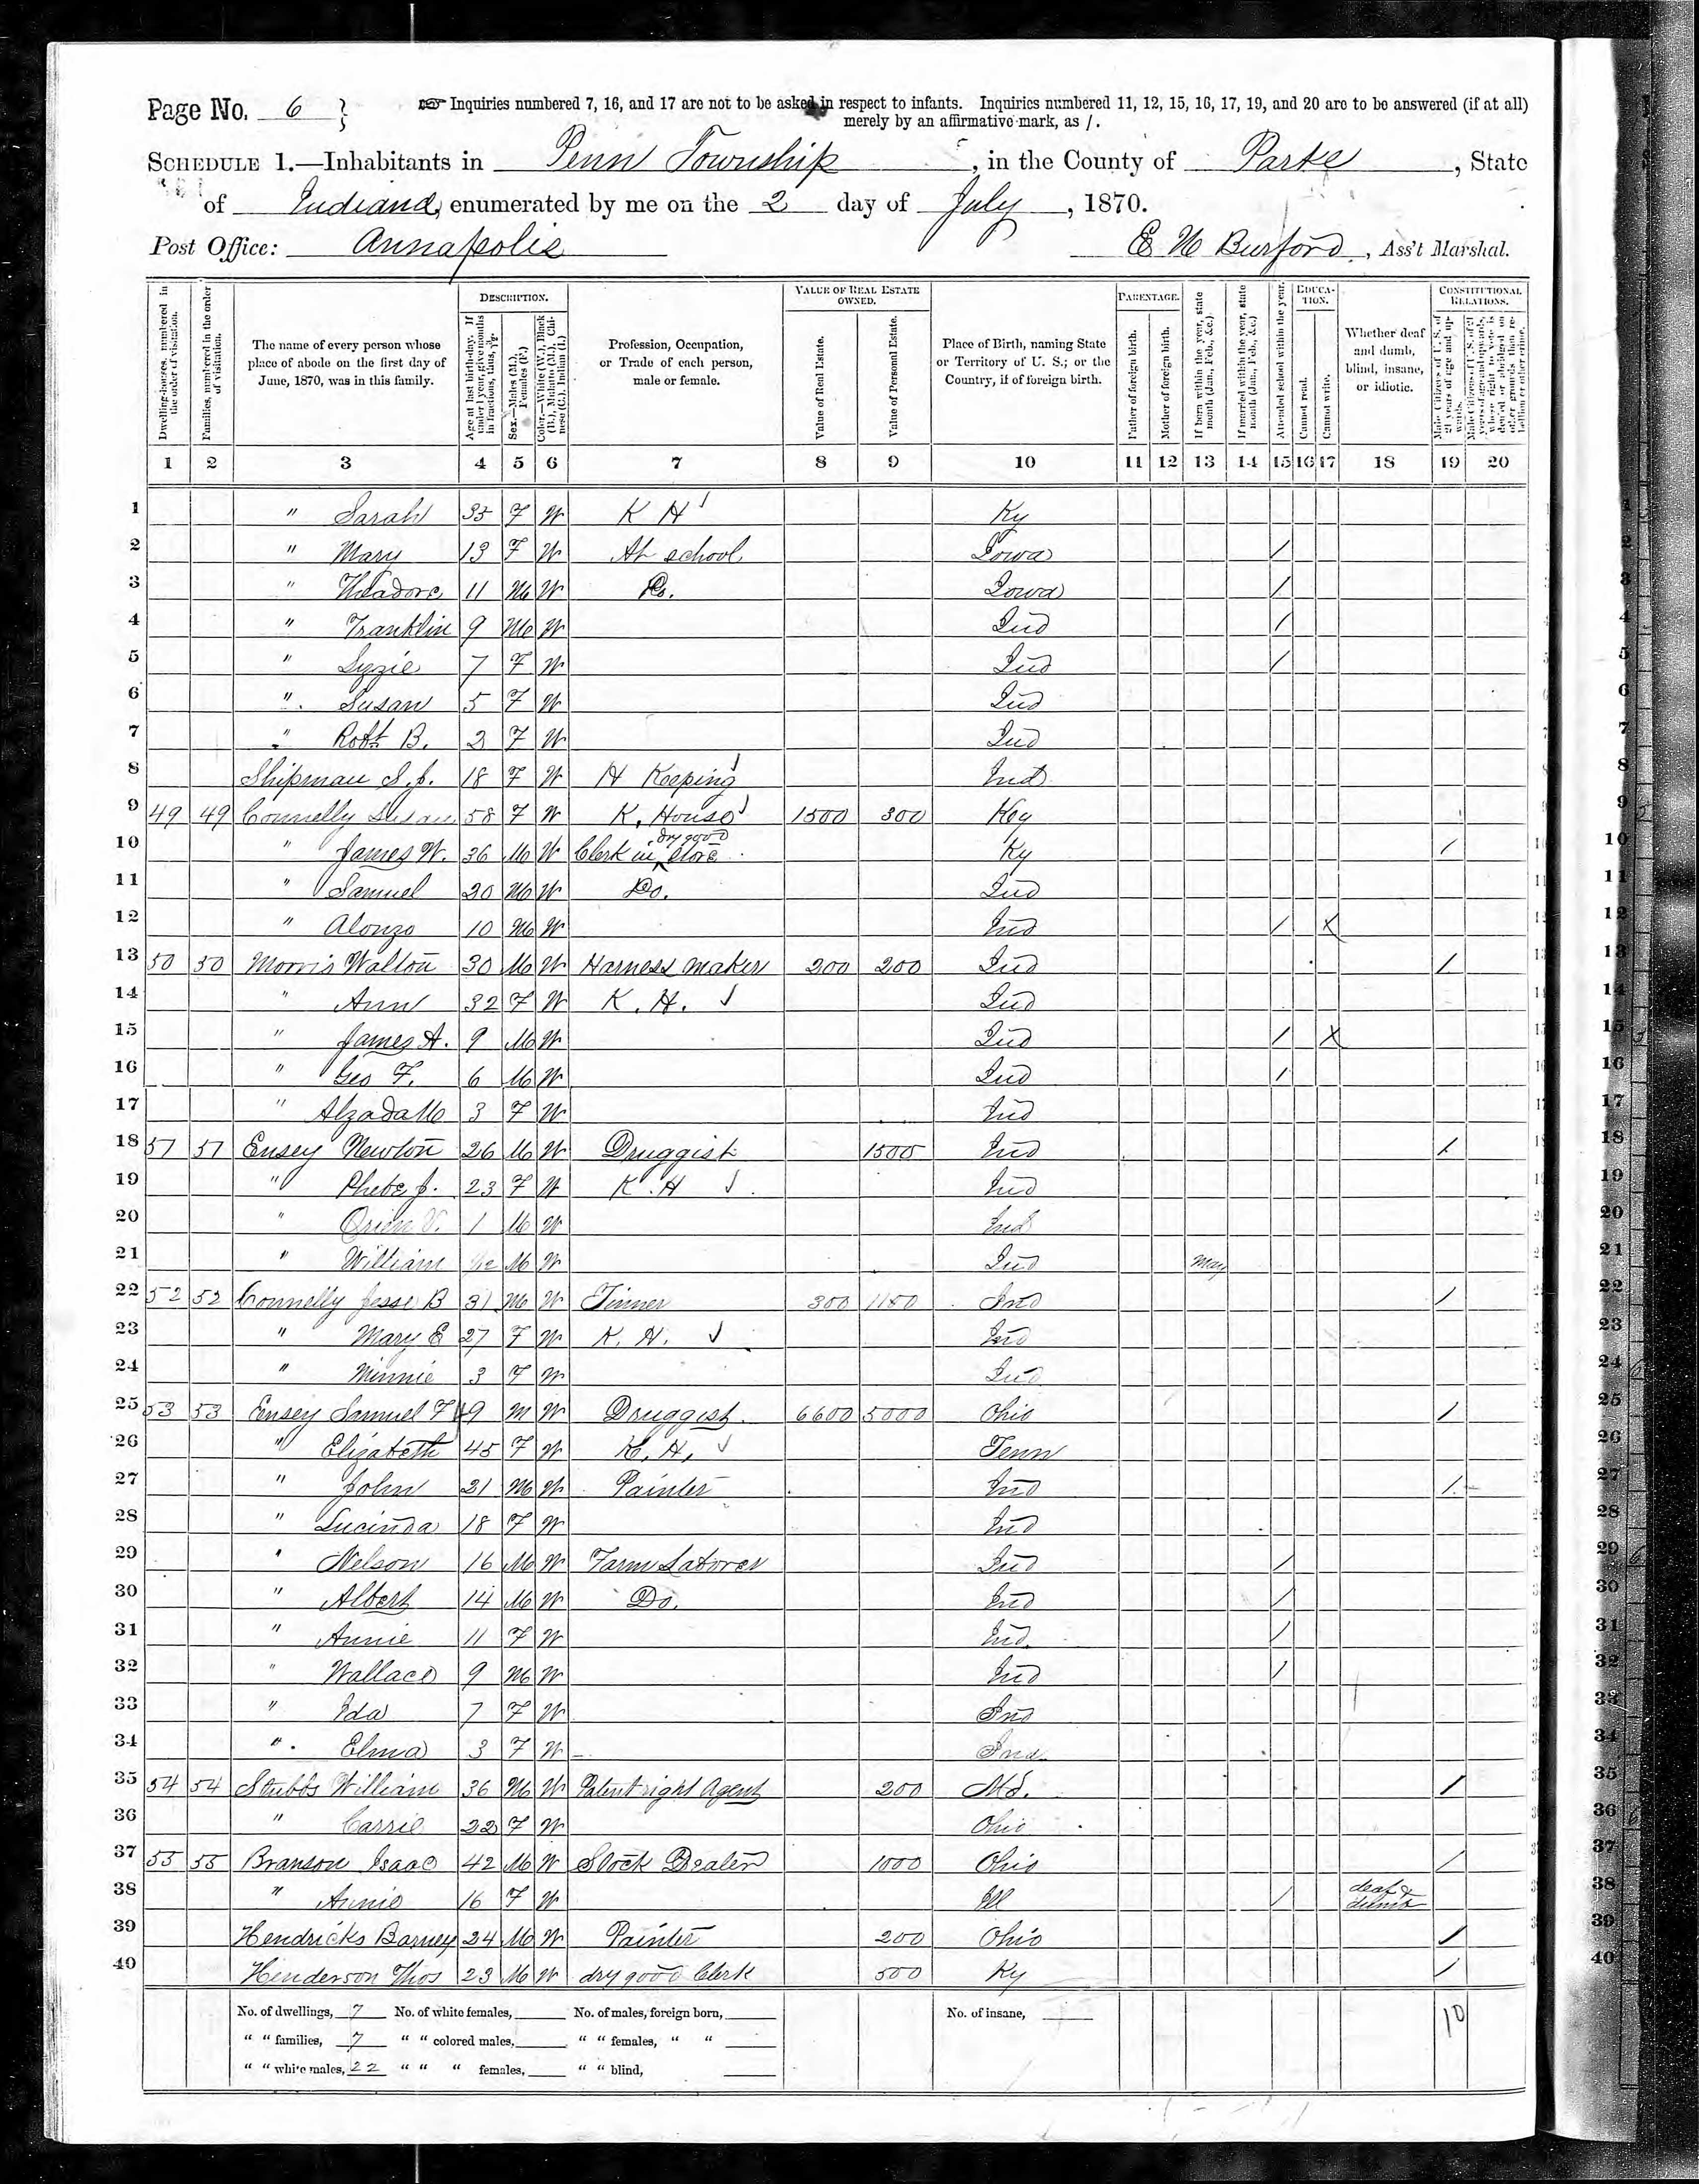 Page No. 6 } Inquiries numbered 7, 16, and 17 are not to be asked in respect to infants. Inquiries numbered 11, 12, 15, 16, 17, 19, and 20 are to be answered (if at all)
merely by an affirmative mark, as /.
SCHEDULE 1.—Inhabitants in Penn Township, in the County of Parke, State
of Indiana, enumerated by me on the 2 day of July, 1870.
Post Office: Annapolis E N Burford, Ass't Marshal.
Dwelling-houses, numbered in the order of visitation.
Families, numbered in the order of visitation.
The name of every person whose place of abode on the first day of June, 1870, was in this family.
DESCRIPTION.
Age at last birth-day. If under 1 year, give months in fractions, thus, 3/12.
Sex.—Males (M.), Females (F.)
Color.—White (W.), Black (B.), Mulatto (M.), Chinese (C.), Indian (I.)
Profession, Occupation, or Trade of each person, male or female.
VALUE OF REAL ESTATE OWNED.
Value of Real Estate.
Value of Personal Estate.
Place of Birth, naming State or Territory of U. S.; or the Country, if of foreign birth.
PARENTAGE.
Father of foreign birth.
Mother of foreign birth.
If born within the year, state month (Jan., Feb., &c.)
If married within the year, state month (Jan., Feb., &c.)
Attended school within the year.
EDUCATION.
Cannot read.
Cannot write.
Whether deaf and dumb, blind, insane, or idiotic.
CONSTITUTIONAL RELATIONS.
Male Citizens of U. S. of 21 years of age and upwards.
Male Citizens of U. S. of 21 years of age and upwards, whose right to vote is denied or abridged on other grounds than rebellion or other crime.
1 2 3 4 5 6 7 8 9 10 11 12 13 14 15 16 17 18 19 20
1 " Sarah 35 F W K H Ky
2 " Mary 13 F W At school Iowa /
3 " Theadore 11 M W Do. Iowa /
4 " Franklin 9 M W Ind /
5 " Lyzzie 7 F W Ind /
6 " Susan 5 F W Ind
7 " Robt B. 2 F W Ind
8 Shipman S. J. 18 F W H Keeping Ind
9 49 49 Connelly Susan 58 F W K. House 1500 300 Key
10 " James W. 36 M W Clerk in dry good store Ky /
11 " Samuel 20 M W Do. Ind
12 " Alonzo 10 M W Ind / X
13 50 50 Morris Walton 30 M W Harness maker 200 200 Ind /
14 " Ann 32 F W K. H. Ind
15 " James A. 9 M W Ind / X
16 " Geo F. 6 M W Ind /
17 " Alzada M 3 F W Ind
18 51 51 Ensey Newton 26 M W Druggist 1500 Ind /
19 " Phebe J. 23 F W K. H Ind
20 " Orien V. 1 M W Ind
21 " William 1/12 M W Ind May
22 52 52 Connelly Jesse B 31 M W Tinner 300 1150 Ind /
23 " Mary E 27 F W K. H. Ind
24 " Minnie 3 F W Ind
25 53 53 Ensey Samuel F 49 M W Druggist 6600 5000 Ohio /
26 " Elizabeth 45 F W K. H. Tenn
27 " John 21 M W Painter Ind /
28 " Lucinda 18 F W Ind
29 " Nelson 16 M W Farm Laborer Ind /
30 " Albert 14 M W Do. Ind /
31 " Annie 11 F W Ind. /
32 " Wallace 9 M W Ind /
33 " Ida 7 F W Ind
34 " Elma 3 F W Ind
35 54 54 Stubbs William 36 M W Patent right Agent 200 Md. /
36 " Carrie 22 F W Ohio
37 55 55 Branson Isaac 42 M W Stock Dealer 1000 Ohio /
38 " Annie 16 F W Ill / deaf & dumb
39 Hendricks Barney 24 M W Painter 200 Ohio /
40 Henderson Thos 23 M W dry good Clerk 500 Ky /
No. of dwellings, 7 No. of white females, No. of males, foreign born, No. of insane, 10
" " families, 7 " " colored males, " " females, " "
" " white males, 22 " " " females, " " blind,